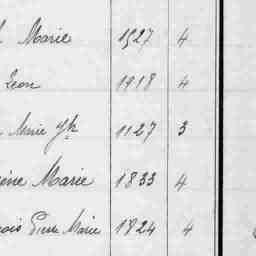 Marie 1927 4
Leon 1918 4
Marie Jh 1127 3
ène Marie 1833 4
çois Pierre Marie 1824 4